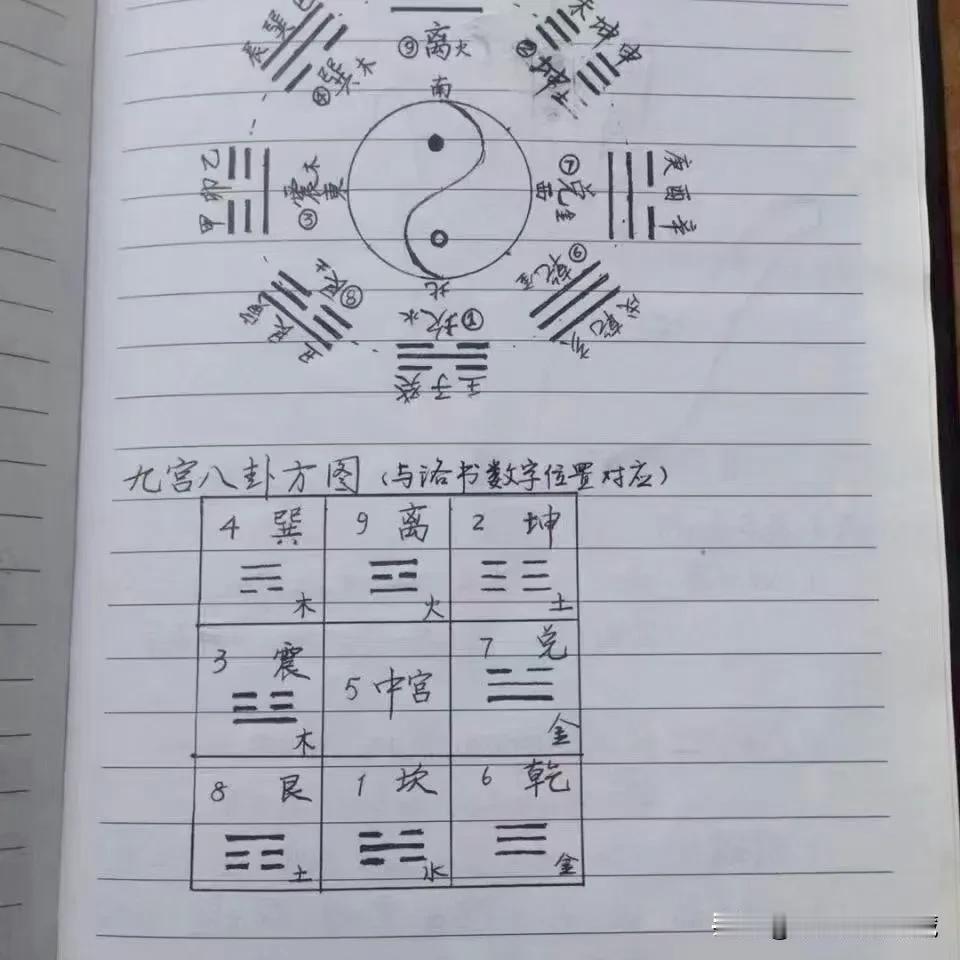 辰 巽
④ 巽木
⑨ 离火
南
未 坤 申
② 坤土
乙 卯 甲
③ 震木
東
⑦ 兑金
西
庚 酉 辛
⑧ 艮土
艮 丑
北
① 坎水
壬 子 癸
⑥ 乾金
戌 乾 亥
九宫八卦方图(与洛书数字位置对应)
4 巽 9 离 2 坤
木 火 土
3 震 5 中宫 7 兑
木 金
8 艮 1 坎 6 乾
土 水 金